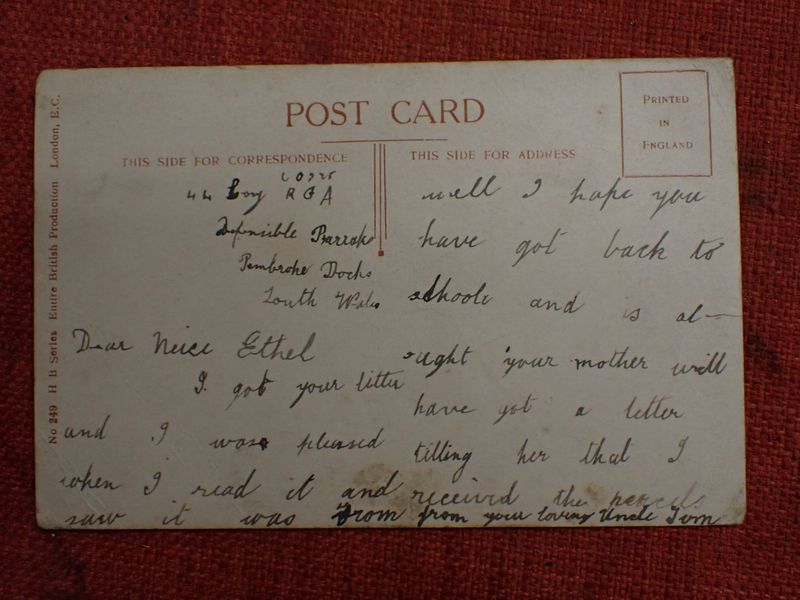 POST CARD
PRINTED
IN
ENGLAND
THIS SIDE FOR CORRESPONDENCE
THIS SIDE FOR ADDRESS
No 249 H B Series Entire British Production London, E.C.
44 Coy R G A
Defensible Barraks
Pembroke Docks
South Wales
Dear Neice Ethel
I got your litter
and I was pleased
when I read it and
saw it was from
well I hope you
have got back to
schoole and is al-
ught your mother will
have got a letter
tilling her that I
received the pencils
from your loving Uncle Tom